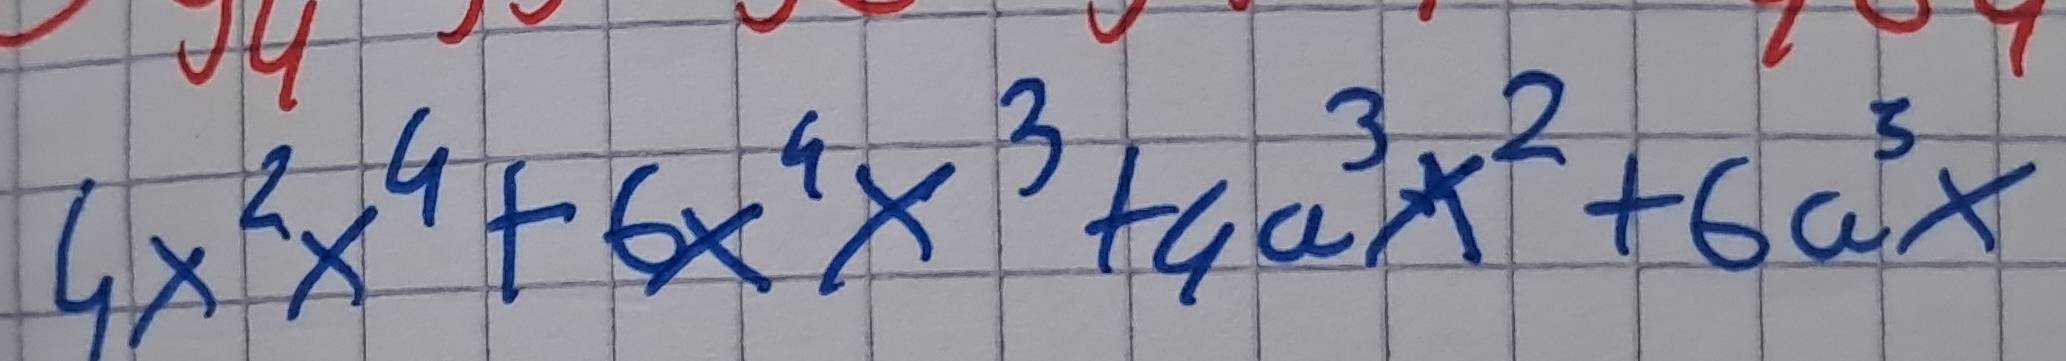 4x²x⁴+6x⁴x³+4a³x²+6a³x